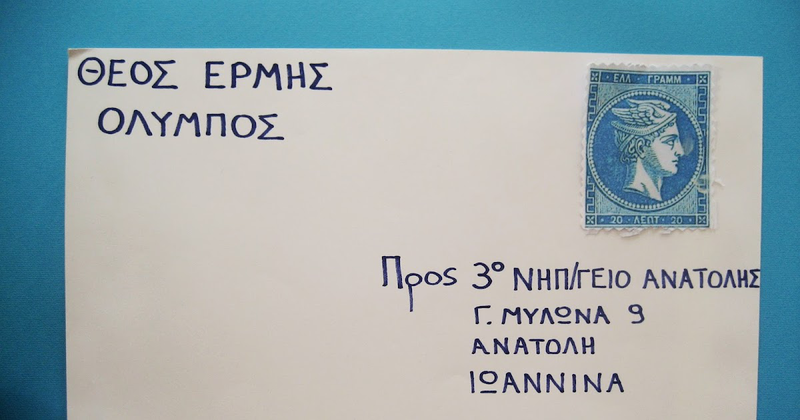 ΘΕΟΣ ΕΡΜΗΣ
ΟΛΥΜΠΟΣ
ΕΛΛ ΓΡΑΜΜ
20 ΛΕΠΤ 20
Προς 3º ΝΗΠ/ΓΕΙΟ ΑΝΑΤΟΛΗΣ
Γ. ΜΥΛΩΝΑ 9
ΑΝΑΤΟΛΗ
ΙΩΑΝΝΙΝΑ